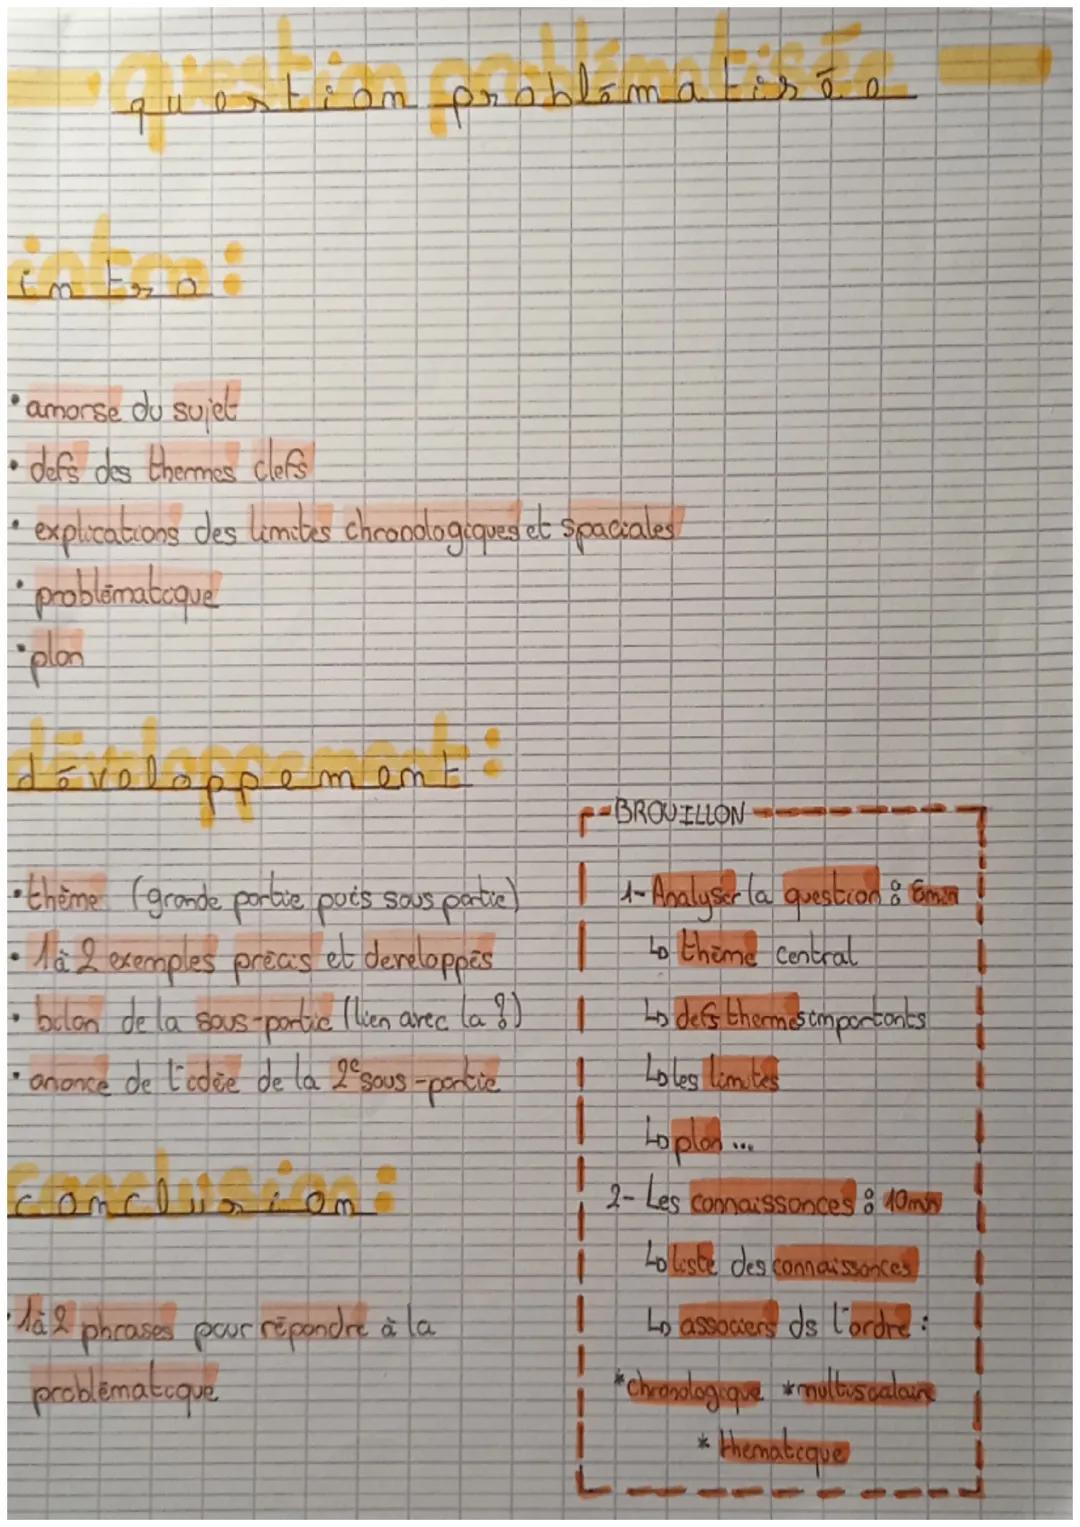 question problématisée
intro :
• amorse du sujet
• defs des thermes clefs
• explications des limites chronologiques et spaciales
• problématique
• plan
développement :
• thème (grande partie puis sous partie)
• 1 à 2 exemples précis et developpés
• bilan de la sous-partie (lien avec la ?)
• anonce de l'idée de la 2e sous-partie
conclusion :
• 1 à 2 phrases pour répondre à la
problématique
BROUILLON
1- Analyser la question : 5min
↳ thème central
↳ defs thermes importants
↳ les limites
↳ plan ...
2- Les connaissances : 10min
↳ liste des connaissances
↳ associers ds l'ordre :
* chronologique * multiscalaire
* thematique